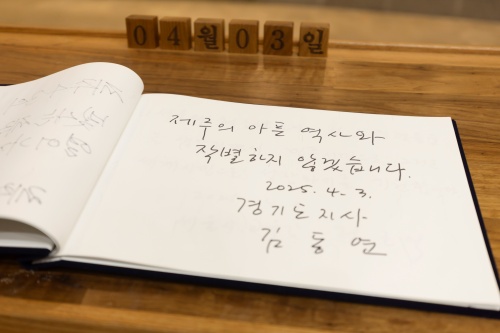 04월03일
제주의 아픈 역사와
작별하지 않겠습니다.
2025. 4. 3.
경기도지사
김 동 연